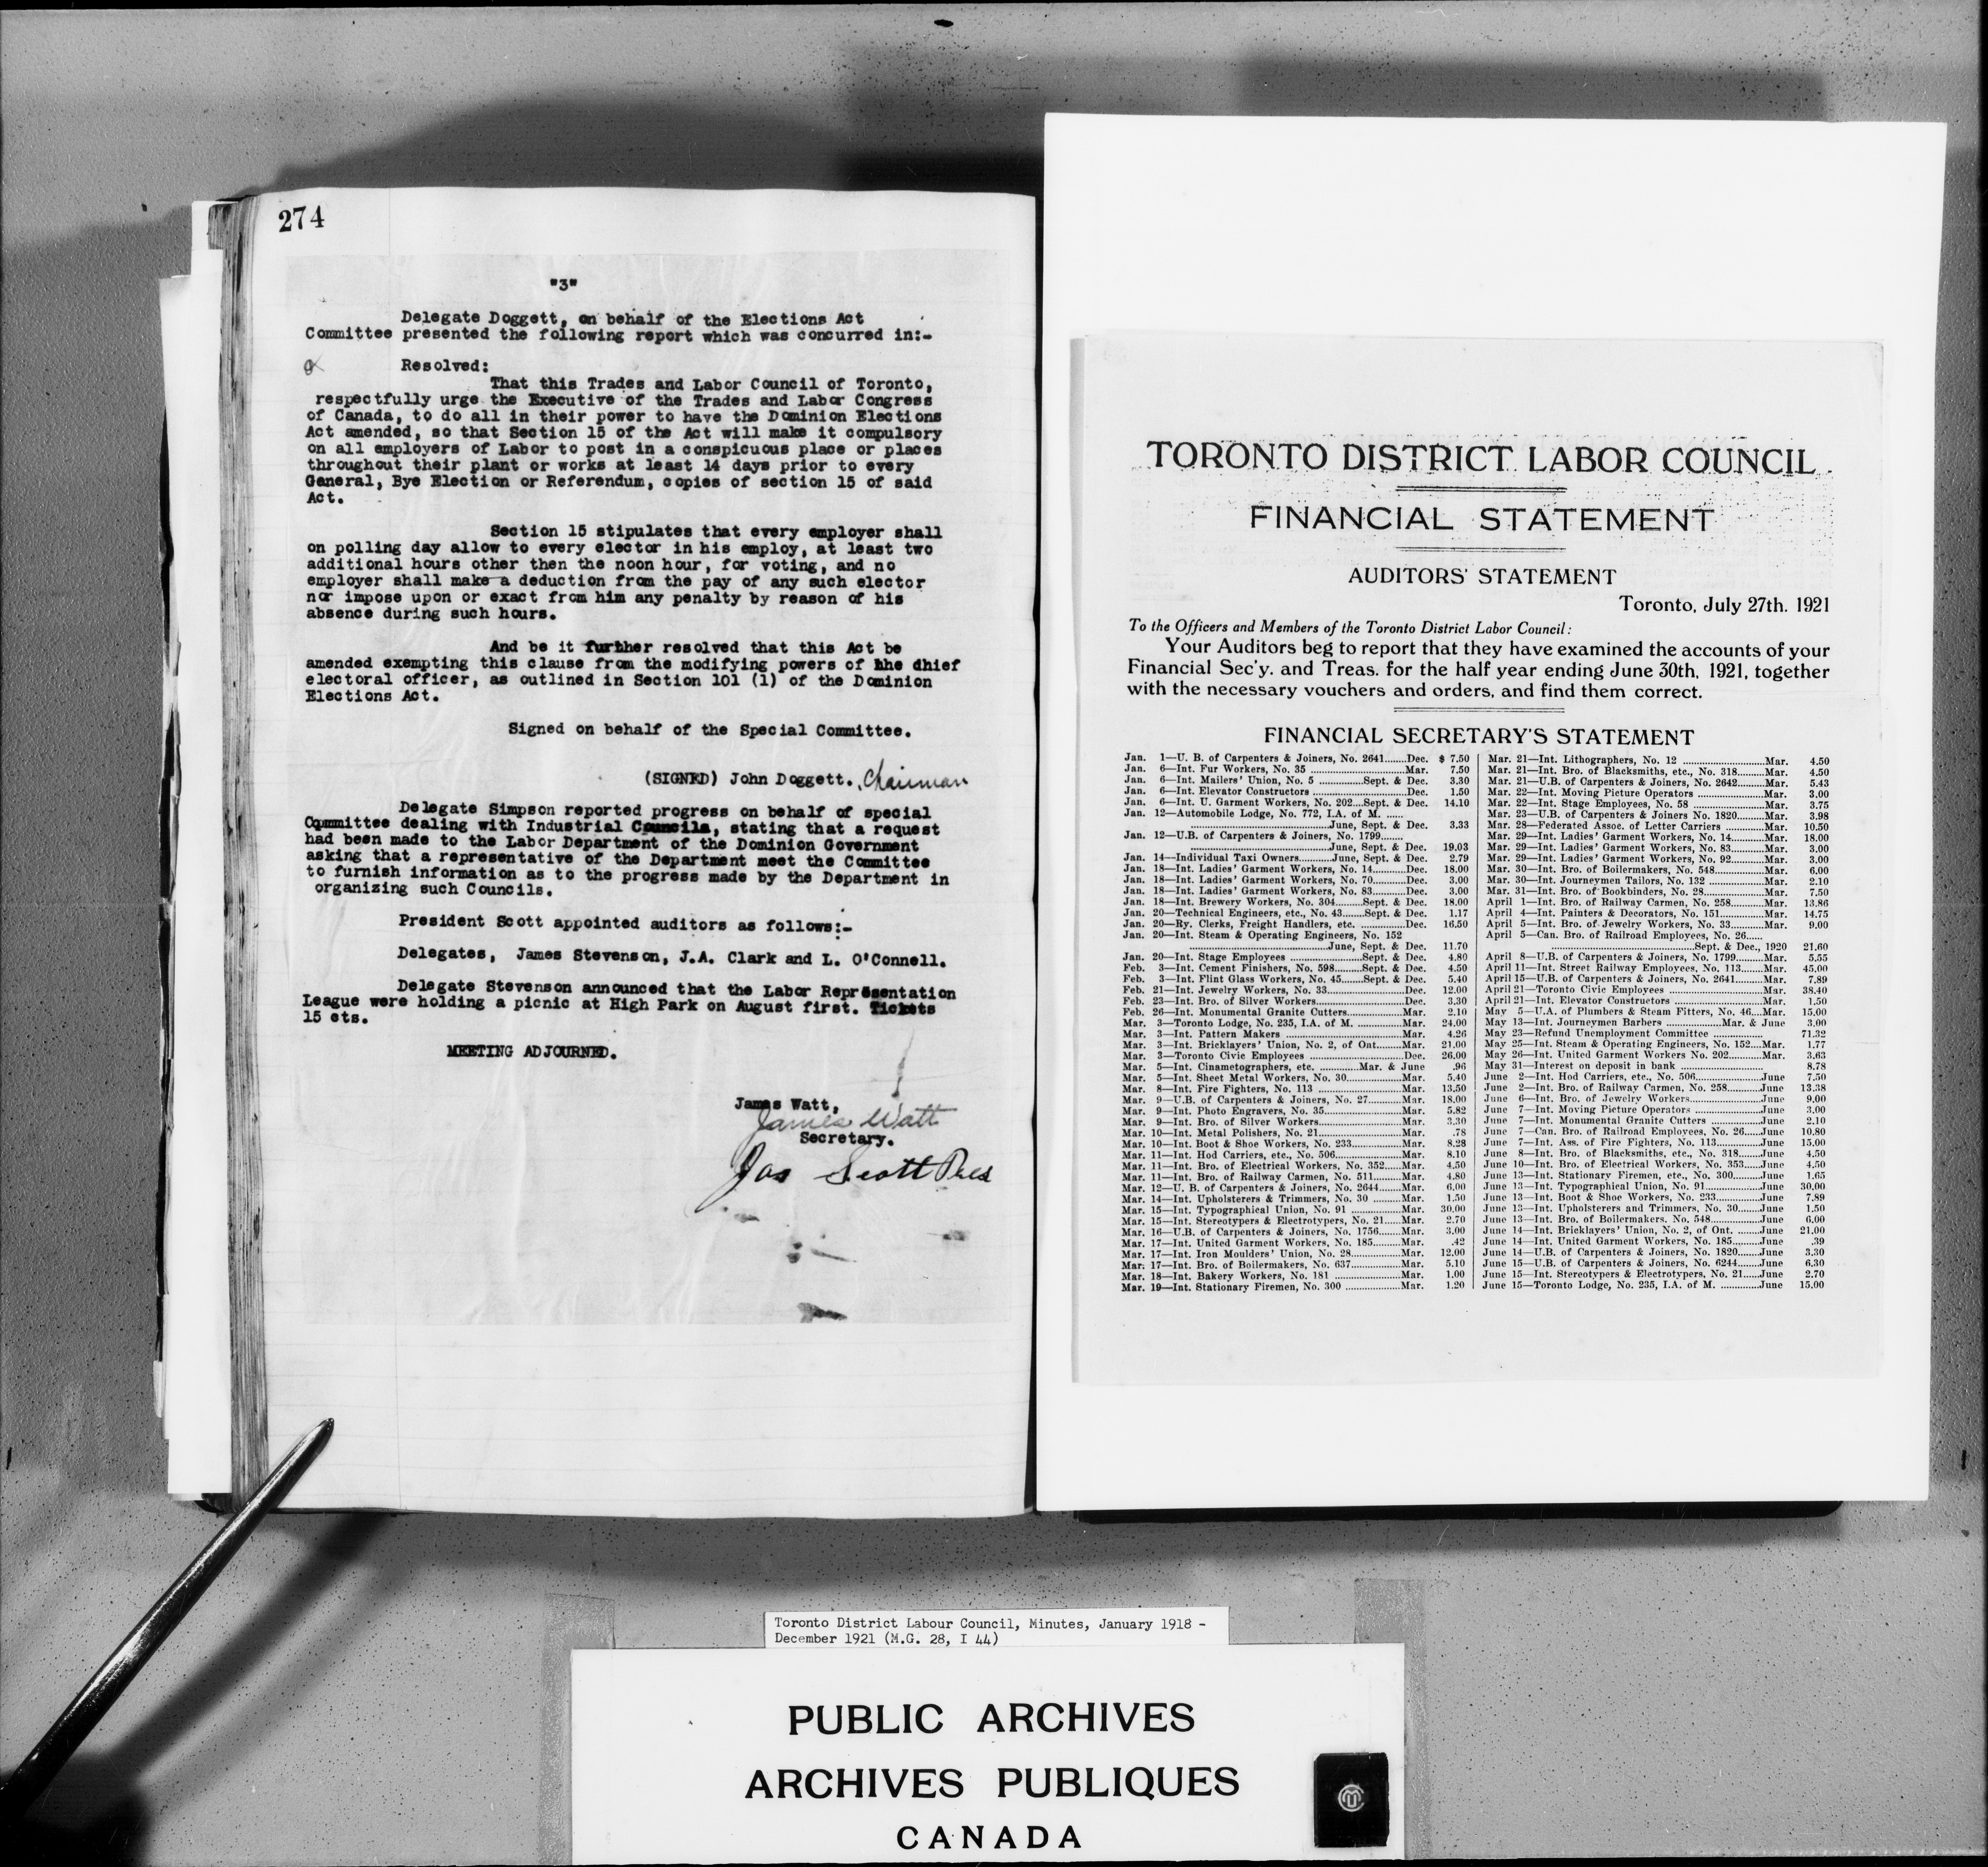 274
"3"
Delegate Doggett, on behalf of the Elections Act
Committee presented the following report which was concurred in:-
Resolved:
That this Trades and Labor Council of Toronto,
respectfully urge the Executive of the Trades and Labor Congress
of Canada, to do all in their power to have the Dominion Elections
Act amended, so that Section 15 of the Act will make it compulsory
on all employers of Labor to post in a conspicuous place or places
throughout their plant or works at least 14 days prior to every
General, Bye Election or Referendum, copies of section 15 of said
Act.
Section 15 stipulates that every employer shall
on polling day allow to every elector in his employ, at least two
additional hours other then the noon hour, for voting, and no
employer shall make a deduction from the pay of any such elector
nor impose upon or exact from him any penalty by reason of his
absence during such hours.
And be it further resolved that this Act be
amended exempting this clause from the modifying powers of hhe dhief
electoral officer, as outlined in Section 101 (1) of the Dominion
Elections Act.
Signed on behalf of the Special Committee.
(SIGNED) John Doggett. Chairman
Delegate Simpson reported progress on behalf of special
Committee dealing with Industrial Councils, stating that a request
had been made to the Labor Department of the Dominion Government
asking that a representative of the Department meet the Committee
to furnish information as to the progress made by the Department in
organizing such Councils.
President Scott appointed auditors as follows:-
Delegates, James Stevenson, J.A. Clark and L. O'Connell.
Delegate Stevenson announced that the Labor Representation
League were holding a picnic at High Park on August first. Tickets
15 cts.
MEETING ADJOURNED.
James Watt,
James Watt
Secretary.
Jas Scott Pres
TORONTO DISTRICT LABOR COUNCIL
FINANCIAL STATEMENT
AUDITORS' STATEMENT
Toronto, July 27th. 1921
To the Officers and Members of the Toronto District Labor Council:
Your Auditors beg to report that they have examined the accounts of your
Financial Sec'y. and Treas. for the half year ending June 30th, 1921, together
with the necessary vouchers and orders, and find them correct.
FINANCIAL SECRETARY'S STATEMENT
Jan. 1—U. B. of Carpenters & Joiners, No. 2641.......Dec. $ 7.50
Jan. 6—Int. Fur Workers, No. 35 ..........Mar. 7.50
Jan. 6—Int. Mailers' Union, No. 5 ..........Sept. & Dec. 3.30
Jan. 6—Int. Elevator Constructors ..........Dec. 1.50
Jan. 6—Int. U. Garment Workers, No. 202....Sept. & Dec. 14.10
Jan. 12—Automobile Lodge, No. 772, I.A. of M. ......
..........June, Sept. & Dec. 3.33
Jan. 12—U.B. of Carpenters & Joiners, No. 1799.......
..........June, Sept. & Dec. 19.03
Jan. 14—Individual Taxi Owners..........June, Sept. & Dec. 2.79
Jan. 18—Int. Ladies' Garment Workers, No. 14..........Dec. 18.00
Jan. 18—Int. Ladies' Garment Workers, No. 70..........Dec. 3.00
Jan. 18—Int. Ladies' Garment Workers, No. 83..........Dec. 3.00
Jan. 18—Int. Brewery Workers, No. 304........Sept. & Dec. 18.00
Jan. 20—Technical Engineers, etc., No. 43.......Sept. & Dec. 1.17
Jan. 20—Ry. Clerks, Freight Handlers, etc. ..........Dec. 16.50
Jan. 20—Int. Steam & Operating Engineers, No. 152
..........June, Sept. & Dec. 11.70
Jan. 20—Int. Stage Employees ..........Sept. & Dec. 4.80
Feb. 3—Int. Cement Finishers, No. 598........Sept. & Dec. 4.50
Feb. 3—Int. Flint Glass Workers, No. 45.......Sept. & Dec. 5.40
Feb. 21—Int. Jewelry Workers, No. 33..........Dec. 12.00
Feb. 23—Int. Bro. of Silver Workers..........Dec. 3.30
Feb. 26—Int. Monumental Granite Cutters..........Mar. 2.10
Mar. 3—Toronto Lodge, No. 235, I.A. of M. ..........Mar. 24.00
Mar. 3—Int. Pattern Makers ..........Mar. 4.26
Mar. 3—Int. Bricklayers' Union, No. 2, of Ont........Mar. 21.00
Mar. 3—Toronto Civic Employees ..........Dec. 26.00
Mar. 5—Int. Cinametographers, etc. ..........Mar. & June .96
Mar. 5—Int. Sheet Metal Workers, No. 30..........Mar. 5.40
Mar. 8—Int. Fire Fighters, No. 113 ..........Mar. 13.50
Mar. 9—U.B. of Carpenters & Joiners, No. 27........Mar. 18.00
Mar. 9—Int. Photo Engravers, No. 35..........Mar. 5.82
Mar. 9—Int. Bro. of Silver Workers..........Mar. 3.30
Mar. 10—Int. Metal Polishers, No. 21..........Mar. .78
Mar. 10—Int. Boot & Shoe Workers, No. 233..........Mar. 8.28
Mar. 11—Int. Hod Carriers, etc., No. 506..........Mar. 8.10
Mar. 11—Int. Bro. of Electrical Workers, No. 352......Mar. 4.50
Mar. 11—Int. Bro. of Railway Carmen, No. 511........Mar. 4.80
Mar. 12—U. B. of Carpenters & Joiners, No. 2644.......Mar. 6.00
Mar. 14—Int. Upholsterers & Trimmers, No. 30 ........Mar. 1.50
Mar. 15—Int. Typographical Union, No. 91 ..........Mar. 30.00
Mar. 15—Int. Stereotypers & Electrotypers, No. 21......Mar. 2.70
Mar. 16—U.B. of Carpenters & Joiners, No. 1756.......Mar. 3.00
Mar. 17—Int. United Garment Workers, No. 185........Mar. .42
Mar. 17—Int. Iron Moulders' Union, No. 28..........Mar. 12.00
Mar. 17—Int. Bro. of Boilermakers, No. 637..........Mar. 5.10
Mar. 18—Int. Bakery Workers, No. 181 ..........Mar. 1.00
Mar. 19—Int. Stationary Firemen, No. 300 ..........Mar. 1.20
Mar. 21—Int. Lithographers, No. 12 ..........Mar. 4.50
Mar. 21—Int. Bro. of Blacksmiths, etc., No. 318........Mar. 4.50
Mar. 21—U.B. of Carpenters & Joiners, No. 2642........Mar. 5.43
Mar. 22—Int. Moving Picture Operators ..........Mar. 3.00
Mar. 22—Int. Stage Employees, No. 58 ..........Mar. 3.75
Mar. 23—U.B. of Carpenters & Joiners No. 1820........Mar. 3.98
Mar. 28—Federated Assoc. of Letter Carriers ..........Mar. 10.50
Mar. 29—Int. Ladies' Garment Workers, No. 14........Mar. 18.00
Mar. 29—Int. Ladies' Garment Workers, No. 83........Mar. 3.00
Mar. 29—Int. Ladies' Garment Workers, No. 92........Mar. 3.00
Mar. 30—Int. Bro. of Boilermakers, No. 548..........Mar. 6.00
Mar. 30—Int. Journeymen Tailors, No. 132 ..........Mar. 2.10
Mar. 31—Int. Bro. of Bookbinders, No. 28..........Mar. 7.50
April 1—Int. Bro. of Railway Carmen, No. 258........Mar. 13.86
April 4—Int. Painters & Decorators, No. 151..........Mar. 14.75
April 5—Int. Bro. of Jewelry Workers, No. 33........Mar. 9.00
April 5—Can. Bro. of Railroad Employees, No. 26.....
..........Sept. & Dec., 1920 21.60
April 8—U.B. of Carpenters & Joiners, No. 1799.......Mar. 5.55
April 11—Int. Street Railway Employees, No. 113.......Mar. 45.00
April 15—U.B. of Carpenters & Joiners, No. 2641.......Mar. 7.89
April 21—Toronto Civic Employees ..........Mar. 38.40
April 21—Int. Elevator Constructors ..........Mar. 1.50
May 5—U.A. of Plumbers & Steam Fitters, No. 46....Mar. 15.00
May 13—Int. Journeymen Barbers ..........Mar. & June 3.00
May 23—Refund Unemployment Committee .......... 71.32
May 25—Int. Steam & Operating Engineers, No. 152....Mar. 1.77
May 26—Int. United Garment Workers No. 202........Mar. 3.63
May 31—Interest on deposit in bank .......... 8.78
June 2—Int. Hod Carriers, etc., No. 506..........June 7.50
June 2—Int. Bro. of Railway Carmen, No. 258........June 13.38
June 6—Int. Bro. of Jewelry Workers..........June 9.00
June 7—Int. Moving Picture Operators ..........June 3.00
June 7—Int. Monumental Granite Cutters ..........June 2.10
June 7—Can. Bro. of Railroad Employees, No. 26.....June 10.80
June 7—Int. Ass. of Fire Fighters, No. 113..........June 15.00
June 8—Int. Bro. of Blacksmiths, etc., No. 318.......June 4.50
June 10—Int. Bro. of Electrical Workers, No. 353.....June 4.50
June 13—Int. Stationary Firemen, etc., No. 300........June 1.65
June 13—Int. Typographical Union, No. 91..........June 30.00
June 13—Int. Boot & Shoe Workers, No. 233..........June 7.89
June 13—Int. Upholsterers and Trimmers, No. 30.......June 1.50
June 13—Int. Bro. of Boilermakers, No. 548..........June 6.00
June 14—Int. Bricklayers' Union, No. 2, of Ont. ........June 21.00
June 14—Int. United Garment Workers, No. 185........June .39
June 14—U.B. of Carpenters & Joiners, No. 1820.......June 3.30
June 15—U.B. of Carpenters & Joiners, No. 6244.......June 6.30
June 15—Int. Stereotypers & Electrotypers, No. 21.....June 2.70
June 15—Toronto Lodge, No. 235, I.A. of M. ..........June 15.00
Toronto District Labour Council, Minutes, January 1918 -
December 1921 (M.G. 28, I 44)
PUBLIC ARCHIVES
ARCHIVES PUBLIQUES
CANADA